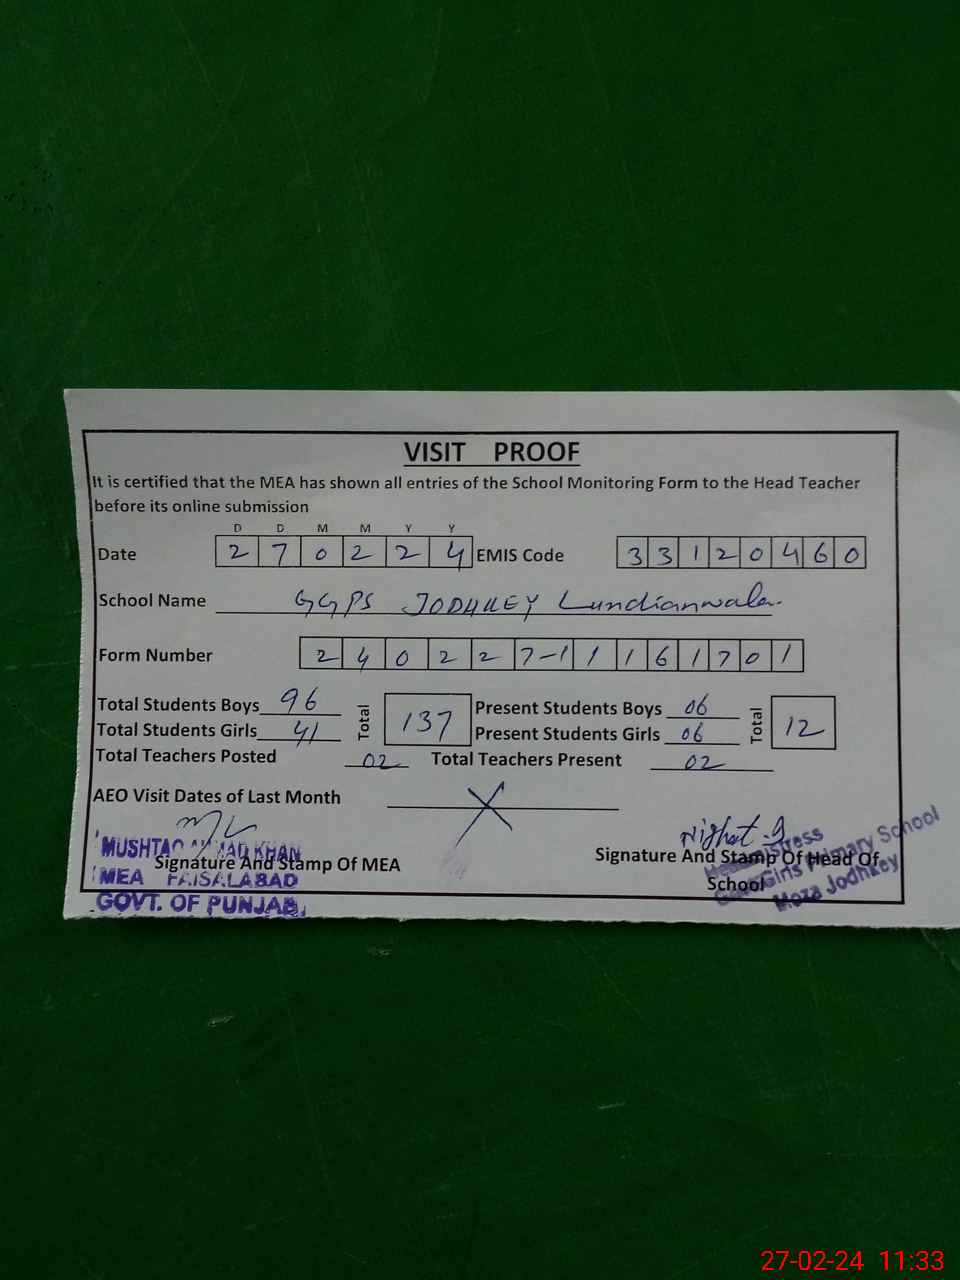 VISIT PROOF
It is certified that the MEA has shown all entries of the School Monitoring Form to the Head Teacher
before its online submission
D D M M Y Y
Date 2 7 0 2 2 4 EMIS Code 3 3 1 2 0 4 6 0
School Name GGPS JODHKEY Lundianwala
Form Number 2 4 0 2 2 7-1 1 1 6 1 7 0 1
Total Students Boys 96 Total 137 Present Students Boys 06 Total 12
Total Students Girls 41 Present Students Girls 06
Total Teachers Posted 02 Total Teachers Present 02
AEO Visit Dates of Last Month X
Nighat
MUSHTAQ AHMAD KHAN
Signature And Stamp Of MEA
MEA FAISALABAD
GOVT. OF PUNJAB
Signature And Stamp Of Head Of
School
Headmistress
Govt Girls Primary School
Moza Jodhkey
27-02-24 11:33